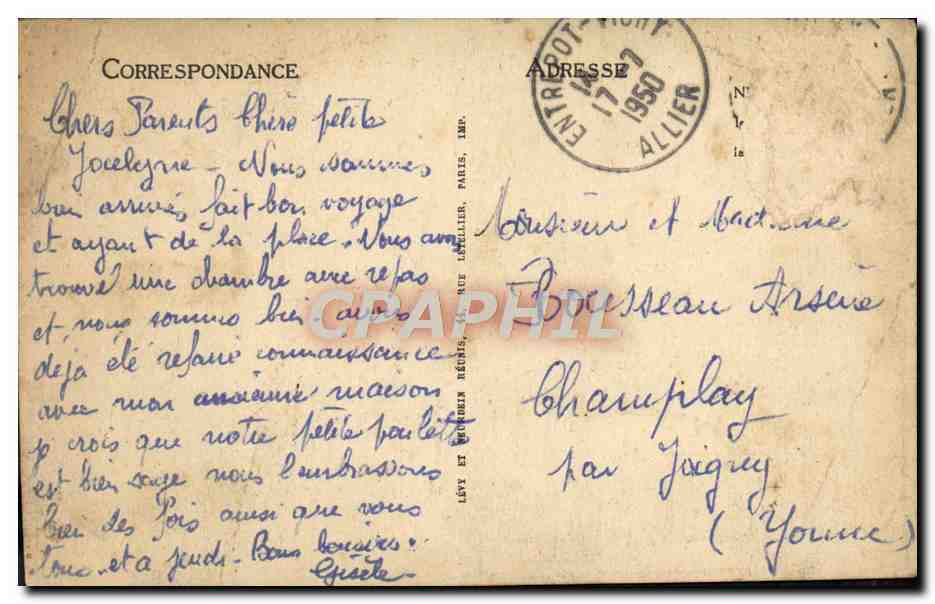 CORRESPONDANCE
Chers Parents Chère petite
Jocelyne - Nous sommes
bien arrivés fait bon voyage
et ayant de la place. Nous avons
trouvé une chambre avec repas
et nous sommes bien. avons
déjà été refaire connaissance
avec mon ancienne maison
je crois que notre petite poulette
est bien sage nous l'embrassons
bien des fois ainsi que vous
tous. et a jeudi. Bons baisers.
Gisèle
LÉVY ET NEURDEIN RÉUNIS, 44, RUE LETELLIER, PARIS, IMP.
ADRESSE
ENTREPOT-VICHY
17-7
1950
ALLIER
Monsieur et Madame
Bousseau Arsène
Champlay
par Joigny
(Yonne)
CPAPHIL